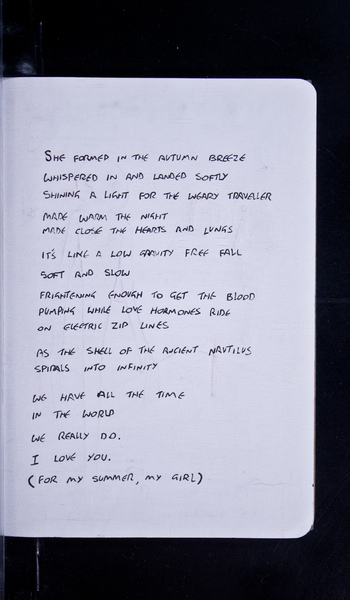 SHE FORMED IN THE AUTUMN BREEZE
WHISPERED IN AND LANDED SOFTLY
SHINING A LIGHT FOR THE WEARY TRAVELLER
MADE WARM THE NIGHT
MADE CLOSE THE HEARTS AND LUNGS
IT'S LIKE A LOW GRAVITY FREE FALL
SOFT AND SLOW
FRIGHTENING ENOUGH TO GET THE BLOOD
PUMPING WHILE LOVE HORMONES RIDE
ON ELECTRIC ZIP LINES
AS THE SHELL OF THE ANCIENT NAUTILUS
SPIRALS INTO INFINITY
WE HAVE ALL THE TIME
IN THE WORLD
WE REALLY DO.
I LOVE YOU.
(FOR MY SUMMER, MY GIRL)